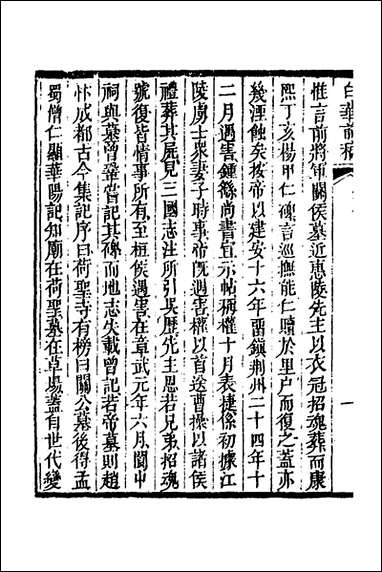 白華前稿
惟言前將軍關侯墓近惠陵先主以衣冠招魂葬而康
熙丁亥楊甲仁碑言巡撫能仁贖於里戶而復之蓋亦
幾湮蝕矣按帝以建安十六年畱鎮荆州二十四年十
二月遇害鍾繇尚書宣示帖稱權十月表捷係初據江
陵虜士衆妻子時事帝旣遇害權以首送曹操以諸侯
禮葬其屍見三國志注所引吳歷先主恩若兄弟招魂
號復皆情事所有至桓侯遇害在章武元年六月閬中
祠與墓曾鞏嘗記其碑而地志失載曾記若帝墓則趙
忭成都古今集記序曰荷聖寺有榜曰關公墓後得孟
蜀僧仁顯華陽記知廟在荷聖墓在草場蓋自世代變